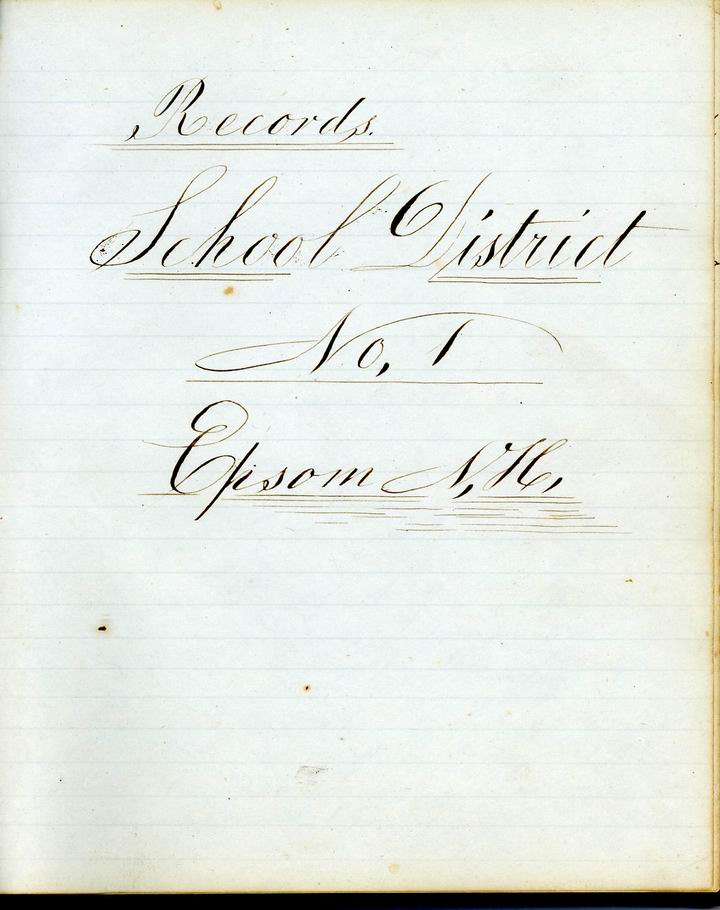 Records.
School District
No, 1
Epsom N,H,